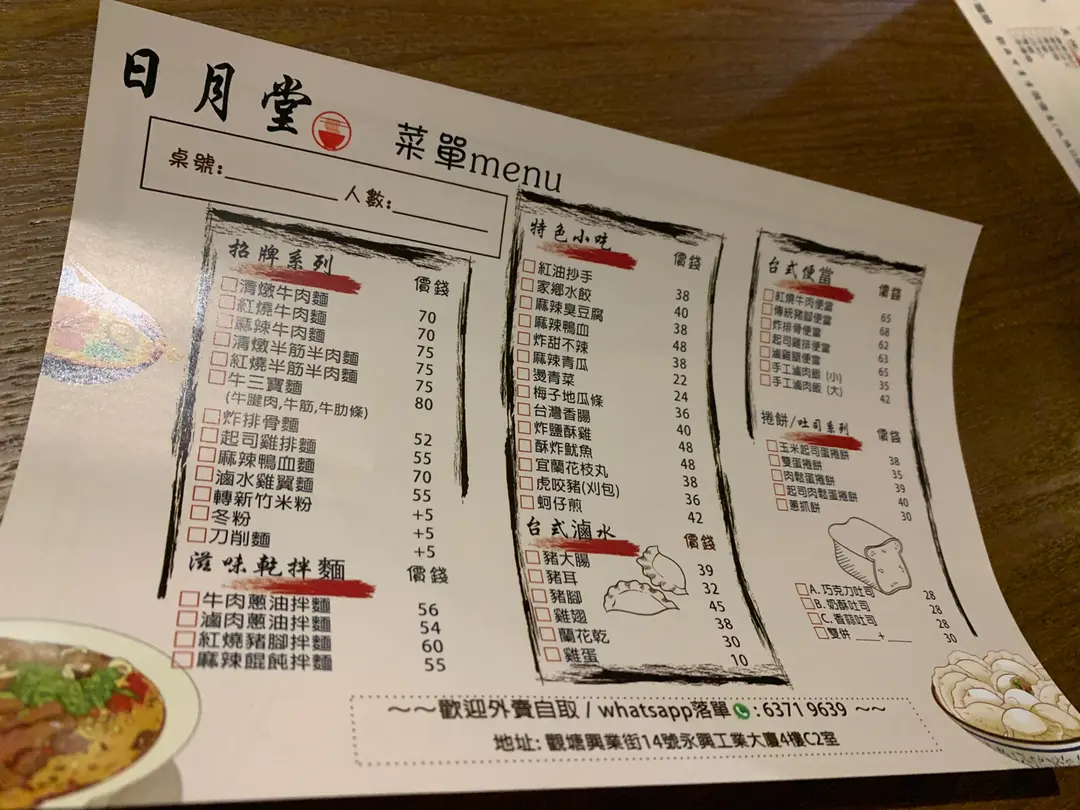 日月堂
菜單menu
桌號:________ 人數:________
招牌系列 價錢
清燉牛肉麵 70
紅燒牛肉麵 70
麻辣牛肉麵 75
清燉半筋半肉麵 75
紅燒半筋半肉麵 75
牛三寶麵 80
(牛腱肉,牛筋,牛肋條)
炸排骨麵 52
起司雞排麵 55
麻辣鴨血麵 70
滷水雞翼麵 55
轉新竹米粉 +5
冬粉 +5
刀削麵 +5
滋味乾拌麵 價錢
牛肉蔥油拌麵 56
滷肉蔥油拌麵 54
紅燒豬腳拌麵 60
麻辣餛飩拌麵 55
特色小吃 價錢
紅油抄手 38
家鄉水餃 40
麻辣臭豆腐 38
麻辣鴨血 48
炸甜不辣 38
麻辣青瓜 22
燙青菜 24
梅子地瓜條 36
台灣香腸 40
炸鹽酥雞 48
酥炸魷魚 48
宜蘭花枝丸 38
虎咬豬(刈包) 36
蚵仔煎 42
台式滷水 價錢
豬大腸 39
豬耳 32
豬腳 45
雞翅 38
蘭花乾 30
雞蛋 10
台式便當 價錢
紅燒牛肉便當 65
傳統豬腳便當 68
炸排骨便當 62
起司雞排便當 63
滷雞腿便當 65
手工滷肉飯 (小) 35
手工滷肉飯 (大) 42
捲餅/吐司系列 價錢
玉米起司蛋捲餅 38
雙蛋捲餅 35
肉鬆蛋捲餅 39
起司肉鬆蛋捲餅 40
蔥抓餅 30
A. 巧克力吐司 28
B. 奶酥吐司 28
C. 香蒜吐司 28
雙併 ___+___ 30
~~歡迎外賣自取 / whatsapp落單:6371 9639 ~~
地址: 觀塘興業街14號永興工業大廈4樓C2室